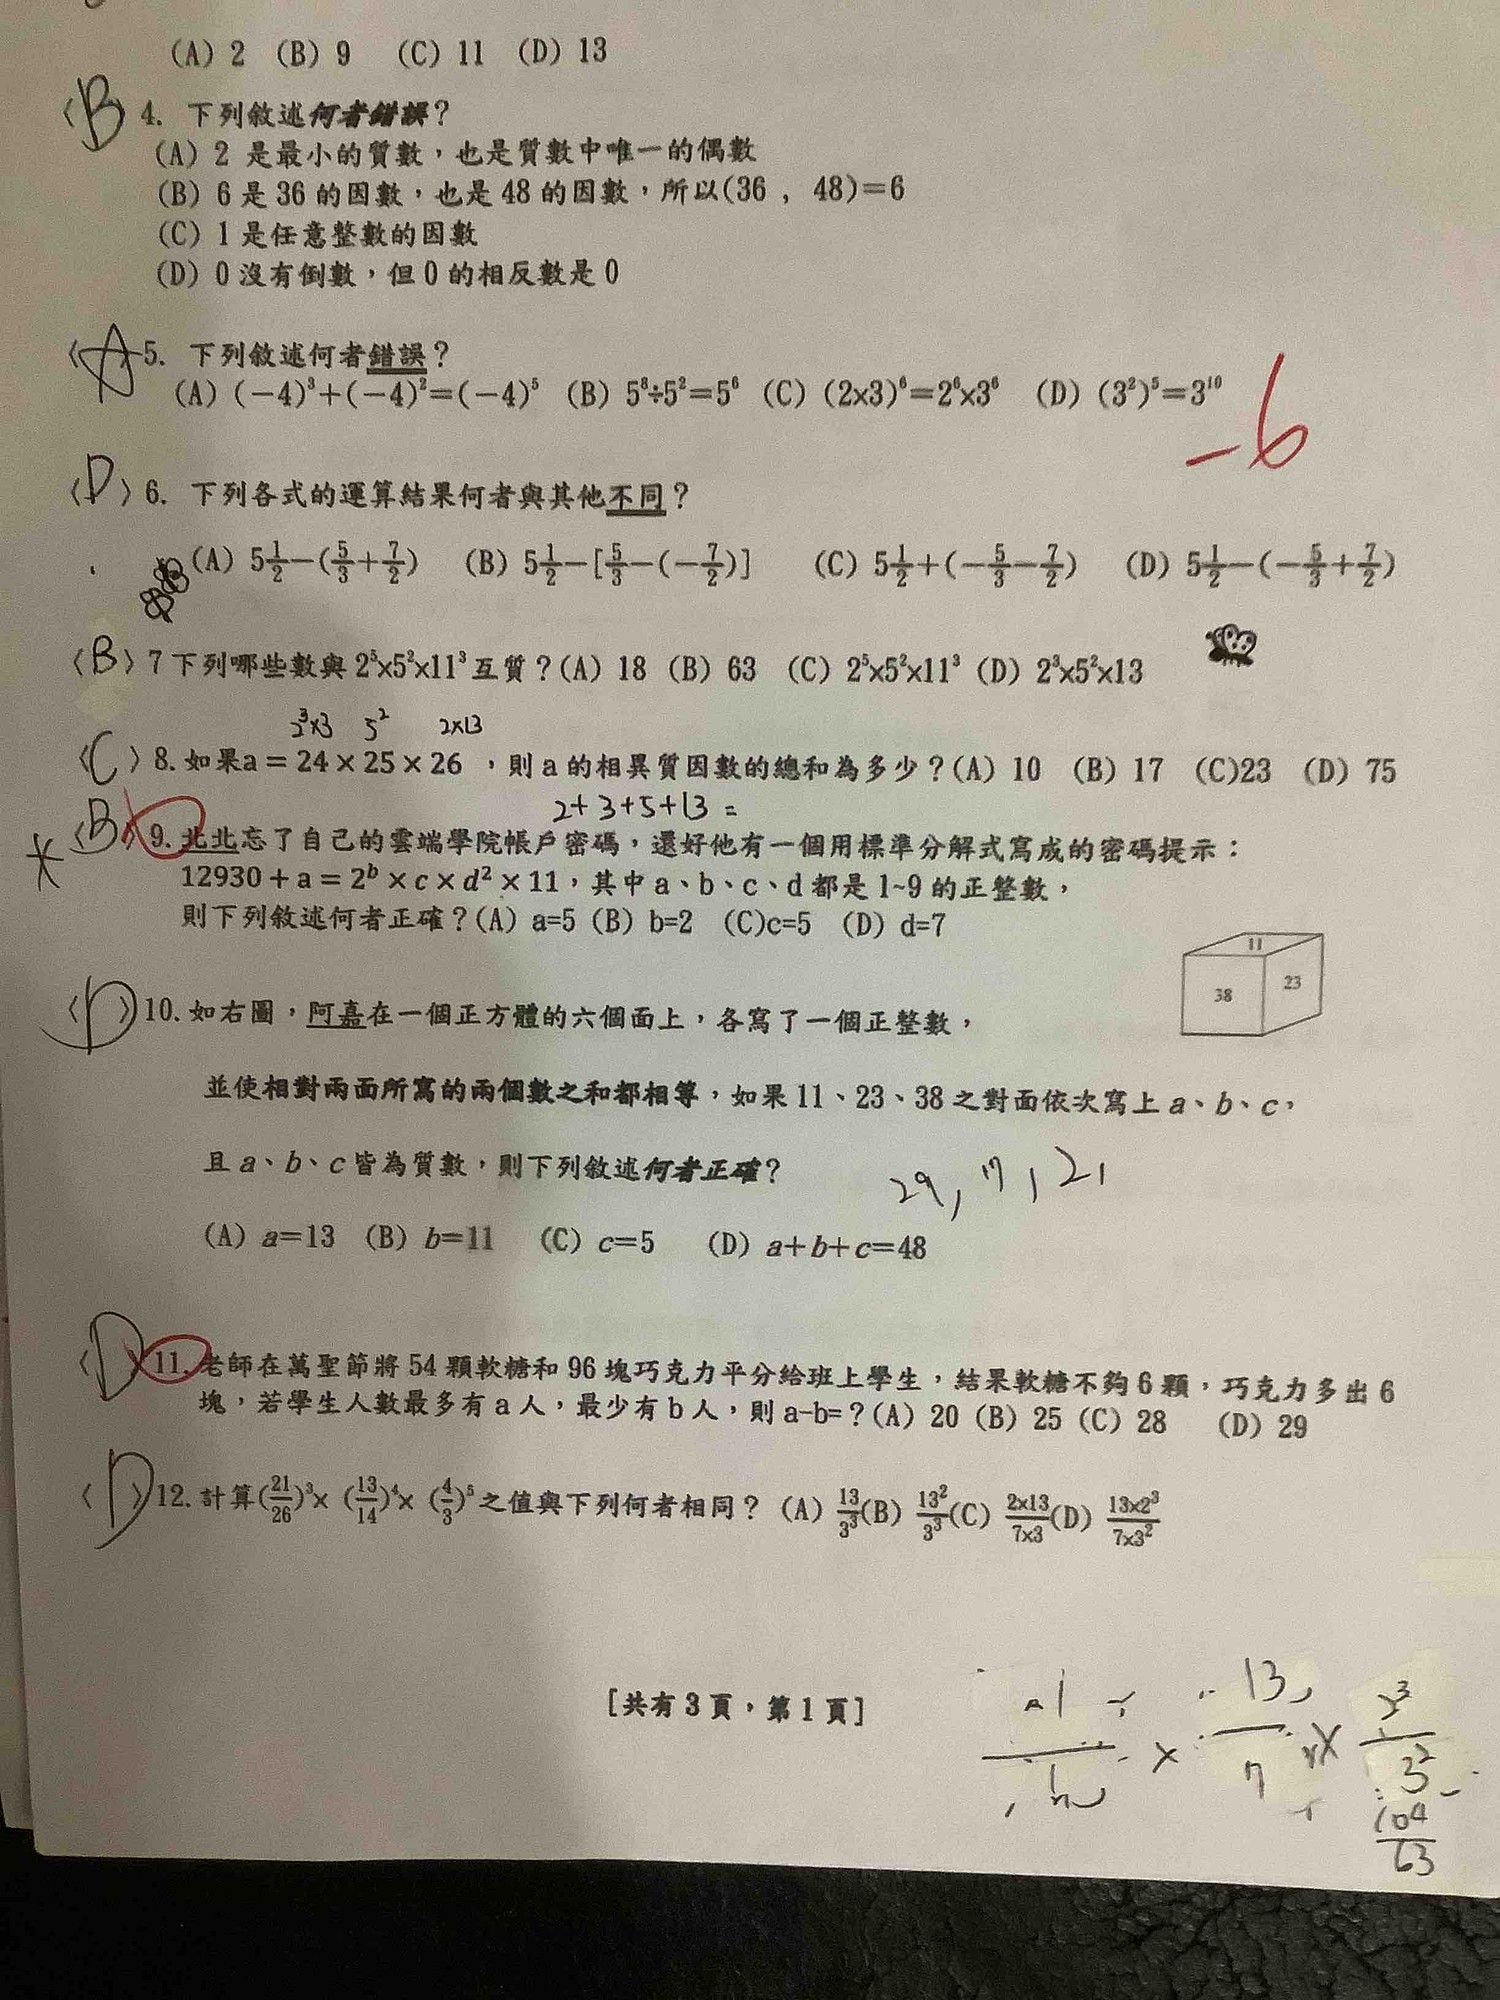 (A) 2 (B) 9 (C) 11 (D) 13
〈B〉4. 下列敘述何者錯誤？
(A) 2 是最小的質數，也是質數中唯一的偶數
(B) 6 是 36 的因數，也是 48 的因數，所以(36 , 48)=6
(C) 1 是任意整數的因數
(D) 0 沒有倒數，但 0 的相反數是 0
〈A〉5. 下列敘述何者錯誤？
(A) (－4)³+(－4)²=(－4)⁵ (B) 5⁸÷5²=5⁶ (C) (2×3)⁶=2⁶×3⁶ (D) (3²)⁵=3¹⁰
-6
〈D〉6. 下列各式的運算結果何者與其他不同？
(A) 5 1/2－(5/3+7/2) (B) 5 1/2－[5/3－(－7/2)] (C) 5 1/2+(－5/3－7/2) (D) 5 1/2－(－5/3+7/2)
〈B〉7 下列哪些數與 2⁵×5²×11³ 互質？(A) 18 (B) 63 (C) 2⁵×5²×11³ (D) 2³×5²×13
2³×3 5² 2×13
〈C〉8. 如果a = 24 × 25 × 26 ，則 a 的相異質因數的總和為多少？(A) 10 (B) 17 (C)23 (D) 75
2+3+5+13=
〈B〉9. 北北忘了自己的雲端學院帳戶密碼，還好他有一個用標準分解式寫成的密碼提示：
12930 + a = 2ᵇ × c × d² × 11，其中 a、b、c、d 都是 1~9 的正整數，
則下列敘述何者正確？(A) a=5 (B) b=2 (C)c=5 (D) d=7
11
38 23
〈D〉10. 如右圖，阿嘉在一個正方體的六個面上，各寫了一個正整數，
並使相對兩面所寫的兩個數之和都相等，如果 11、23、38 之對面依次寫上 a、b、c，
且 a、b、c 皆為質數，則下列敘述何者正確？
29, 17, 2,
(A) a=13 (B) b=11 (C) c=5 (D) a+b+c=48
〈D〉11. 老師在萬聖節將 54 顆軟糖和 96 塊巧克力平分給班上學生，結果軟糖不夠 6 顆，巧克力多出 6
塊，若學生人數最多有 a 人，最少有 b 人，則 a-b=？(A) 20 (B) 25 (C) 28 (D) 29
〈D〉12. 計算(21/26)³× (13/14)⁴× (4/3)⁵之值與下列何者相同？ (A) 13/3³(B) 13²/3³(C) 2×13/7×3(D) 13×2³/7×3²
[共有 3 頁，第 1 頁]
× 13/7 × 2³/3²
104/63